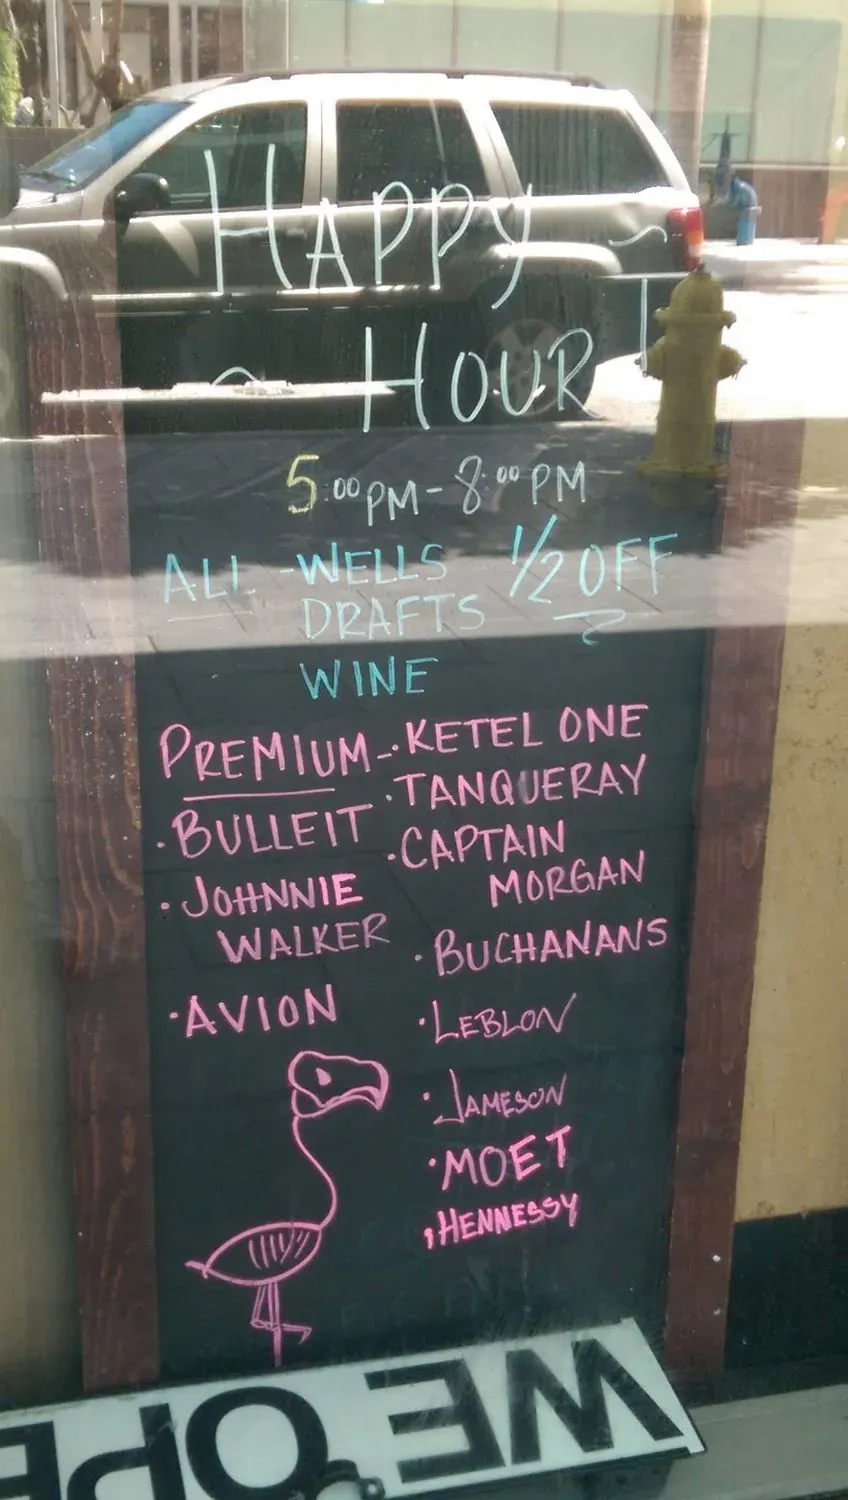 HAPPY
HOUR
5:00PM-8:00PM
ALL -WELLS 1/2 OFF
DRAFTS
WINE
PREMIUM-·KETEL ONE
·TANQUERAY
·BULLEIT
·CAPTAIN
MORGAN
·JOHNNIE
WALKER
·BUCHANANS
·AVION
·LEBLON
·JAMESON
·MOET
·HENNESSY
WE OPE